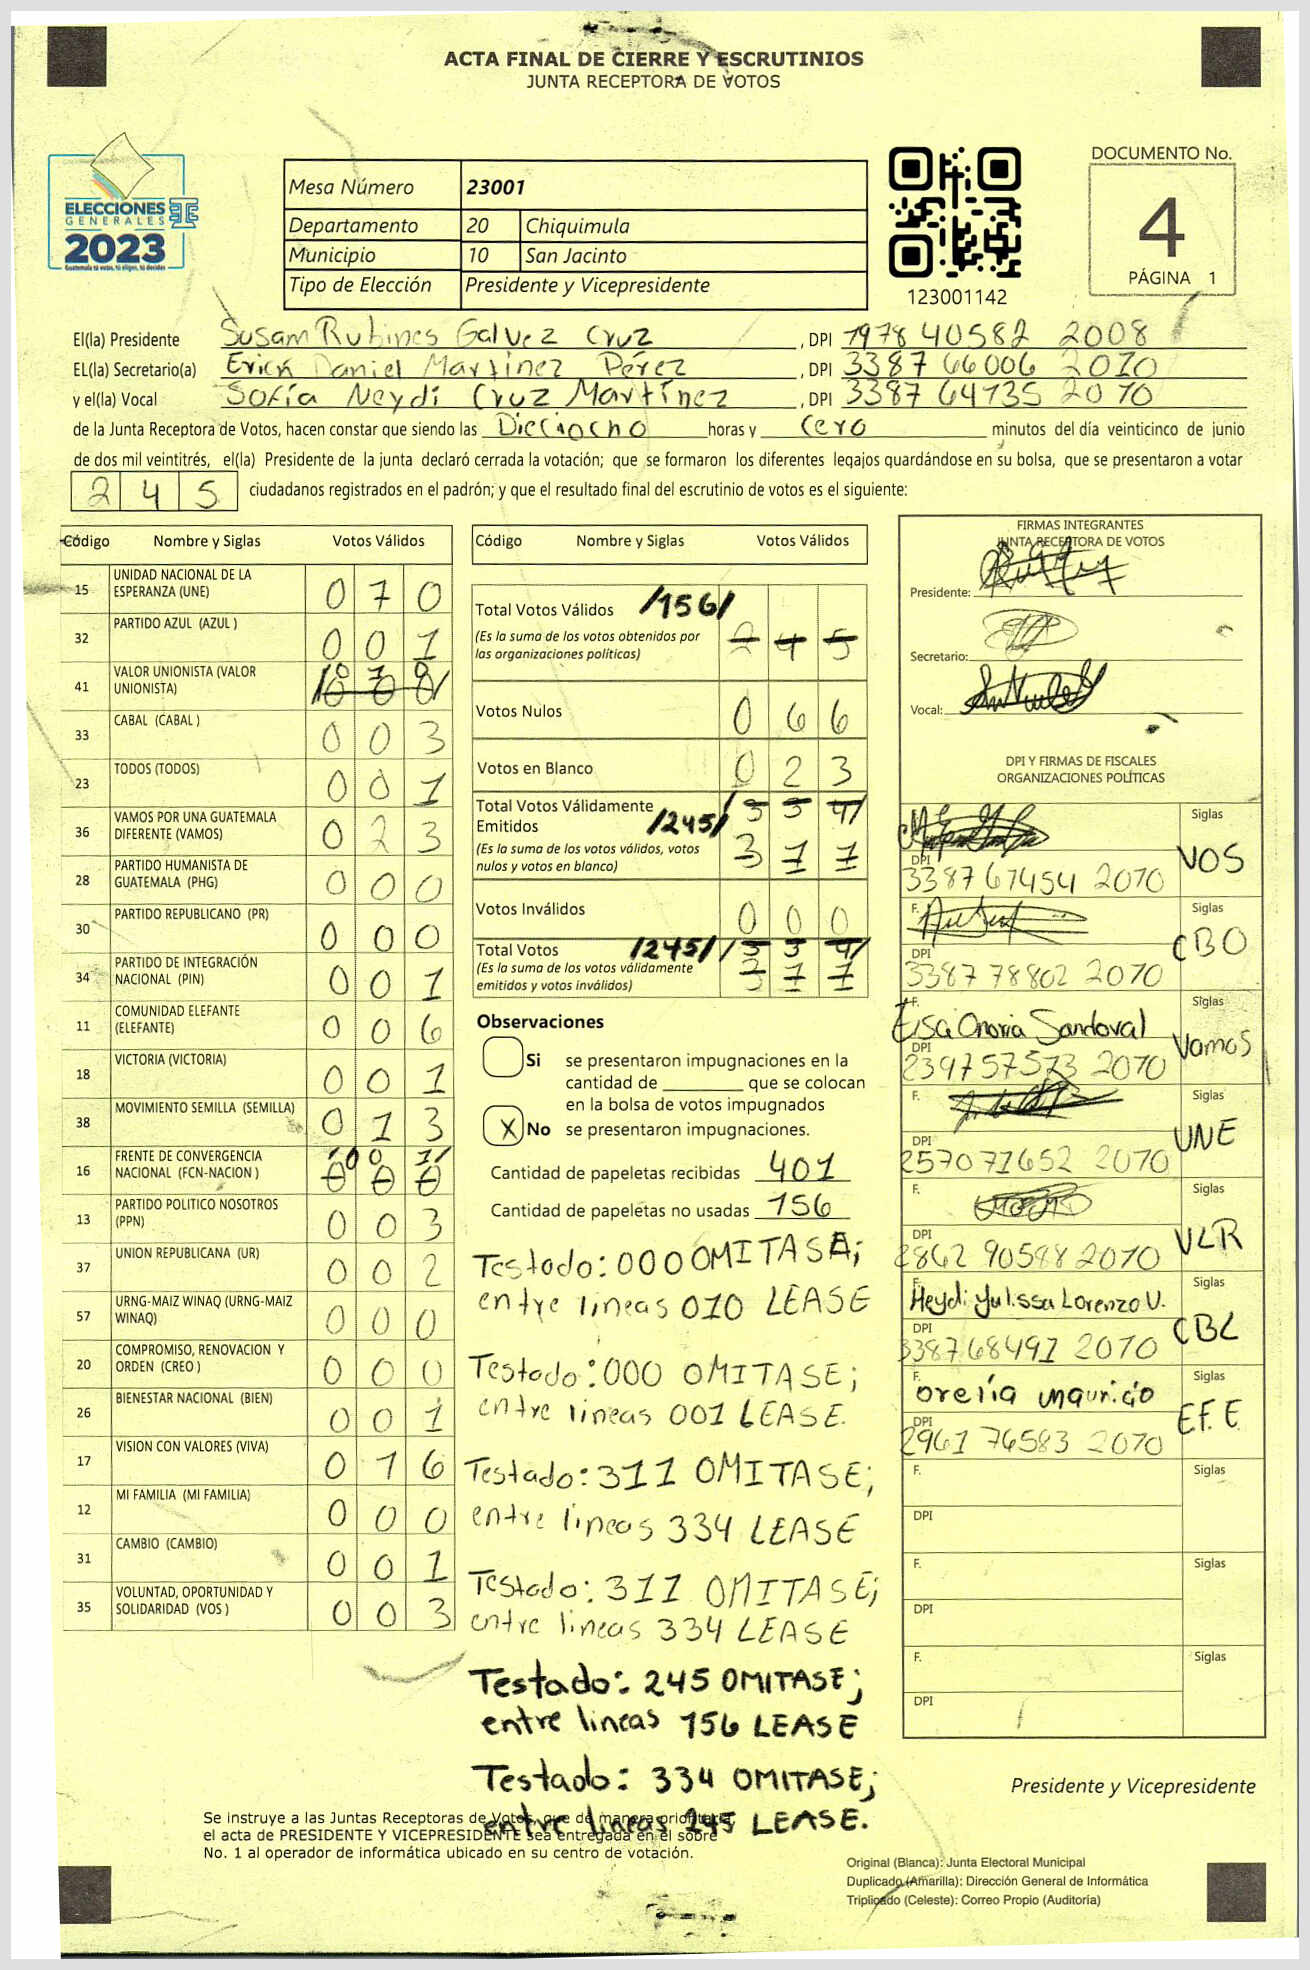 ACTA FINAL DE CIERRE Y ESCRUTINIOS
JUNTA RECEPTORA DE VOTOS
ELECCIONES
GENERALES
2023
Guatemala tú votas, tú eliges, tú decides
Mesa Número 23001
Departamento 20 Chiquimula
Municipio 10 San Jacinto
Tipo de Elección Presidente y Vicepresidente
123001142
DOCUMENTO No.
4
PÁGINA 1
El(la) Presidente Susam Rubines Galvez Cruz , DPI 1978 40582 2008
EL(la) Secretario(a) Erick Daniel Martinez Pérez , DPI 3387 66006 2010
y el(la) Vocal Sofía Neydi Cruz Martínez , DPI 3387 64735 2070
de la Junta Receptora de Votos, hacen constar que siendo las Dieciocho horas y cero minutos del día veinticinco de junio
de dos mil veintitrés, el(la) Presidente de la junta declaró cerrada la votación; que se formaron los diferentes legajos guardándose en su bolsa, que se presentaron a votar
245 ciudadanos registrados en el padrón; y que el resultado final del escrutinio de votos es el siguiente:
Código Nombre y Siglas Votos Válidos
15 UNIDAD NACIONAL DE LA ESPERANZA (UNE) 0 7 0
32 PARTIDO AZUL (AZUL ) 0 0 1
41 VALOR UNIONISTA (VALOR UNIONISTA)
33 CABAL (CABAL ) 0 0 3
23 TODOS (TODOS) 0 0 1
36 VAMOS POR UNA GUATEMALA DIFERENTE (VAMOS) 0 2 3
28 PARTIDO HUMANISTA DE GUATEMALA (PHG) 0 0 0
30 PARTIDO REPUBLICANO (PR) 0 0 0
34 PARTIDO DE INTEGRACIÓN NACIONAL (PIN) 0 0 1
11 COMUNIDAD ELEFANTE (ELEFANTE) 0 0 6
18 VICTORIA (VICTORIA) 0 0 1
38 MOVIMIENTO SEMILLA (SEMILLA) 0 1 3
16 FRENTE DE CONVERGENCIA NACIONAL (FCN-NACION ) /0 0 1/ 0 0 0
13 PARTIDO POLITICO NOSOTROS (PPN) 0 0 3
37 UNION REPUBLICANA (UR) 0 0 2
57 URNG-MAIZ WINAQ (URNG-MAIZ WINAQ) 0 0 0
20 COMPROMISO, RENOVACION Y ORDEN (CREO ) 0 0 0
26 BIENESTAR NACIONAL (BIEN) 0 0 1
17 VISION CON VALORES (VIVA) 0 1 6
12 MI FAMILIA (MI FAMILIA) 0 0 0
31 CAMBIO (CAMBIO) 0 0 1
35 VOLUNTAD, OPORTUNIDAD Y SOLIDARIDAD (VOS ) 0 0 3
Código Nombre y Siglas Votos Válidos
Total Votos Válidos /156/ 2 4 5
(Es la suma de los votos obtenidos por
las organizaciones politicas)
Votos Nulos 0 6 6
Votos en Blanco 0 2 3
Total Votos Válidamente
Emitidos /245/ /3 3 4/
(Es la suma de los votos válidos, votos
nulos y votos en blanco) 3 1 1
Votos Inválidos 0 0 0
Total Votos /245/ /3 3 4/
(Es la suma de los votos válidamente
emitidos y votos inválidos) 3 1 1
Observaciones
Si se presentaron impugnaciones en la
cantidad de ________ que se colocan
en la bolsa de votos impugnados
X No se presentaron impugnaciones.
Cantidad de papeletas recibidas 401
Cantidad de papeletas no usadas 156
Testado: 000 OMITASE;
entre lineas 010 LEASE
Testado: 000 OMITASE;
entre lineas 001 LEASE.
Testado: 311 OMITASE;
entre lineas 334 LEASE
Testado: 311 OMITASE;
entre lineas 334 LEASE
Testado: 245 OMITASE;
entre lineas 156 LEASE
Testado: 334 OMITASE;
entre lineas 245 LEASE.
FIRMAS INTEGRANTES
JUNTA RECEPTORA DE VOTOS
Presidente:
Secretario:
Vocal:
DPI Y FIRMAS DE FISCALES
ORGANIZACIONES POLÍTICAS
Siglas VOS
DPI 3387 67454 2070
F. Siglas CBO
DPI 3387 78802 2070
F. Elsa Onoria Sandoval Siglas Vamos
DPI 2397 57573 2070
F. Siglas UNE
DPI 2570 71652 2070
F. Siglas VLR
DPI 2862 90588 2070
F. Heydi Yulissa Lorenzo V. Siglas CBL
DPI 3387 68491 2070
F. orelia mauricio Siglas E.F.E
DPI 2961 76583 2070
F. Siglas
DPI
F. Siglas
DPI
F. Siglas
DPI
Presidente y Vicepresidente
Se instruye a las Juntas Receptoras de Votos, que de manera prioritaria,
el acta de PRESIDENTE Y VICEPRESIDENTE sea entregada en el sobre
No. 1 al operador de informática ubicado en su centro de votación.
Original (Blanca): Junta Electoral Municipal
Duplicado (Amarilla): Dirección General de Informática
Triplicado (Celeste): Correo Propio (Auditoría)